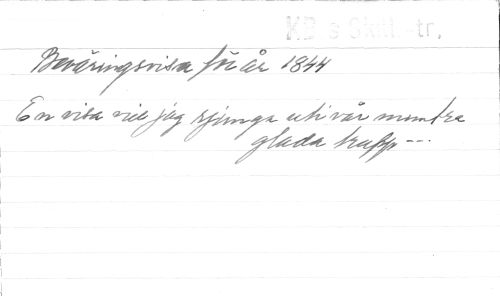 KB s Skill tr,
Beväringsvisa för år 1844
En visa vill jag sjunga uti vår muntra
glada trupp ---